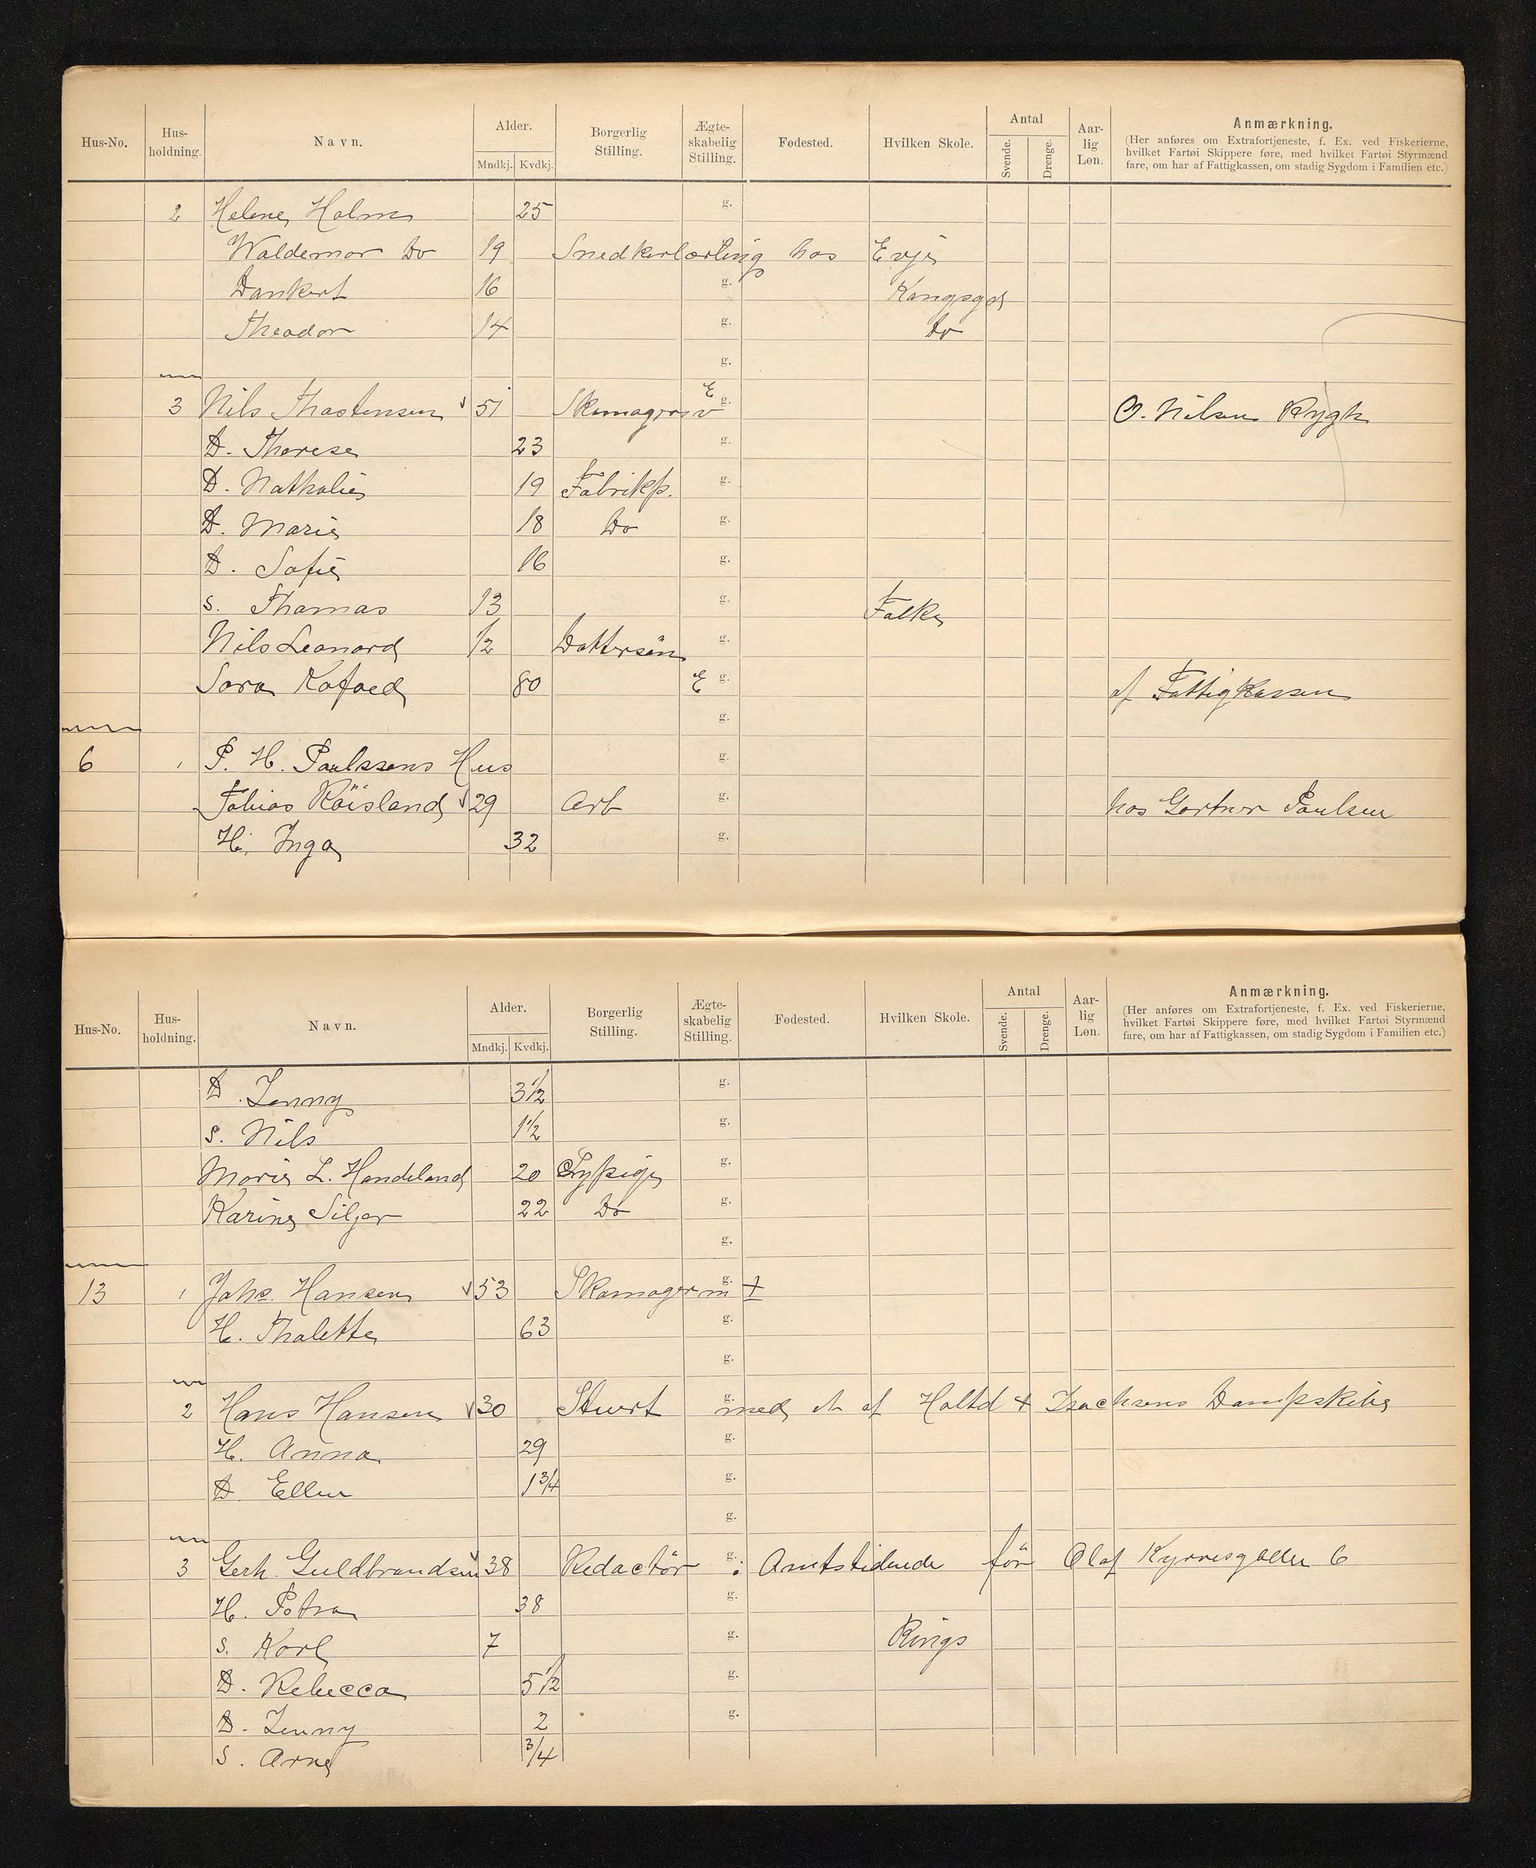 Hus-No. Hus-holdning. Navn. Alder. Mndkj. Kvdkj. Borgerlig Stilling. Ægte-skabelig Stilling. Fødested. Hvilken Skole. Antal Svende. Drenge. Aar-lig Løn. Anmærkning.
(Her anføres om Extrafortjeneste, f. Ex. ved Fiskerierne,
hvilket Fartøi Skippere føre, med hvilket Fartøi Styrmænd
fare, om har af Fattigkassen, om stadig Sygdom i Familien etc.)
2 Helene Holm 25 g.
Waldemar Do 19 Snedkerlærling hos Evje
Dankert 16 g. Kongsgd
Theodor 14 g. Do
g.
3 Nils Thostensen 51 Skomagersv E g. O. Nilsen Rygh
D. Therese 23 g.
D. Nathalie 19 Fabrikp. g.
D. Marie 18 Do g.
D. Sofie 16 g.
S. Thomas 13 g. Folke
Nils Leonard 1/2 Dattersøn g.
Sara Kofoed 80 E g. af Fattigkassen
g.
6 1 P. H. Paulssens Hus g.
Tobias Röisland 29 Arb g. hos Gartner Paulsen
H. Inga 32 g.
Hus-No. Hus-holdning. Navn. Alder. Mndkj. Kvdkj. Borgerlig Stilling. Ægte-skabelig Stilling. Fødested. Hvilken Skole. Antal Svende. Drenge. Aar-lig Løn. Anmærkning.
(Her anføres om Extrafortjeneste, f. Ex. ved Fiskerierne,
hvilket Fartøi Skippere føre, med hvilket Fartøi Styrmænd
fare, om har af Fattigkassen, om stadig Sygdom i Familien etc.)
D. Jenny 3 1/2 g.
S. Nils 1 1/2 g.
Marie L. Handeland 20 g.
Karine Siljar 22 Do g.
g.
13 1 Johs. Hansen 53 Skomagerm g. +
H. Thalette 63 g.
g.
2 Hans Hansen 30 Stuert g. med et af Holtd + Isachsens Dampskibe
H. Anna 29 g.
D. Ellen 1 3/4 g.
g.
3 Gerh. Guldbrandsen 38 Redactør g. : Amtstidende för Olaf Kyrresgaden 6
H. Petra 38 g.
S. Karl 7 g. Kings
D. Rebecca 5 1/2 g.
D. Jenny 2 g.
S. Arne 3/4